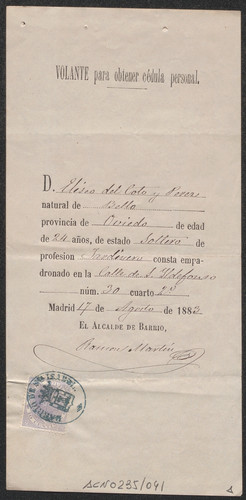 VOLANTE para obtener cédula personal.
D. Eliseo del Coto y
natural de Bello
provincia de Oviedo de edad
de 24 años, de estado Soltero de
profesion consta empa-
dronado en la Calle de S. Ildefonso
núm. 30 cuarto 2º
Madrid 17 de Agosto de 1883
EL ALCALDE DE BARRIO,
Ramon Martin
ACN0235/041